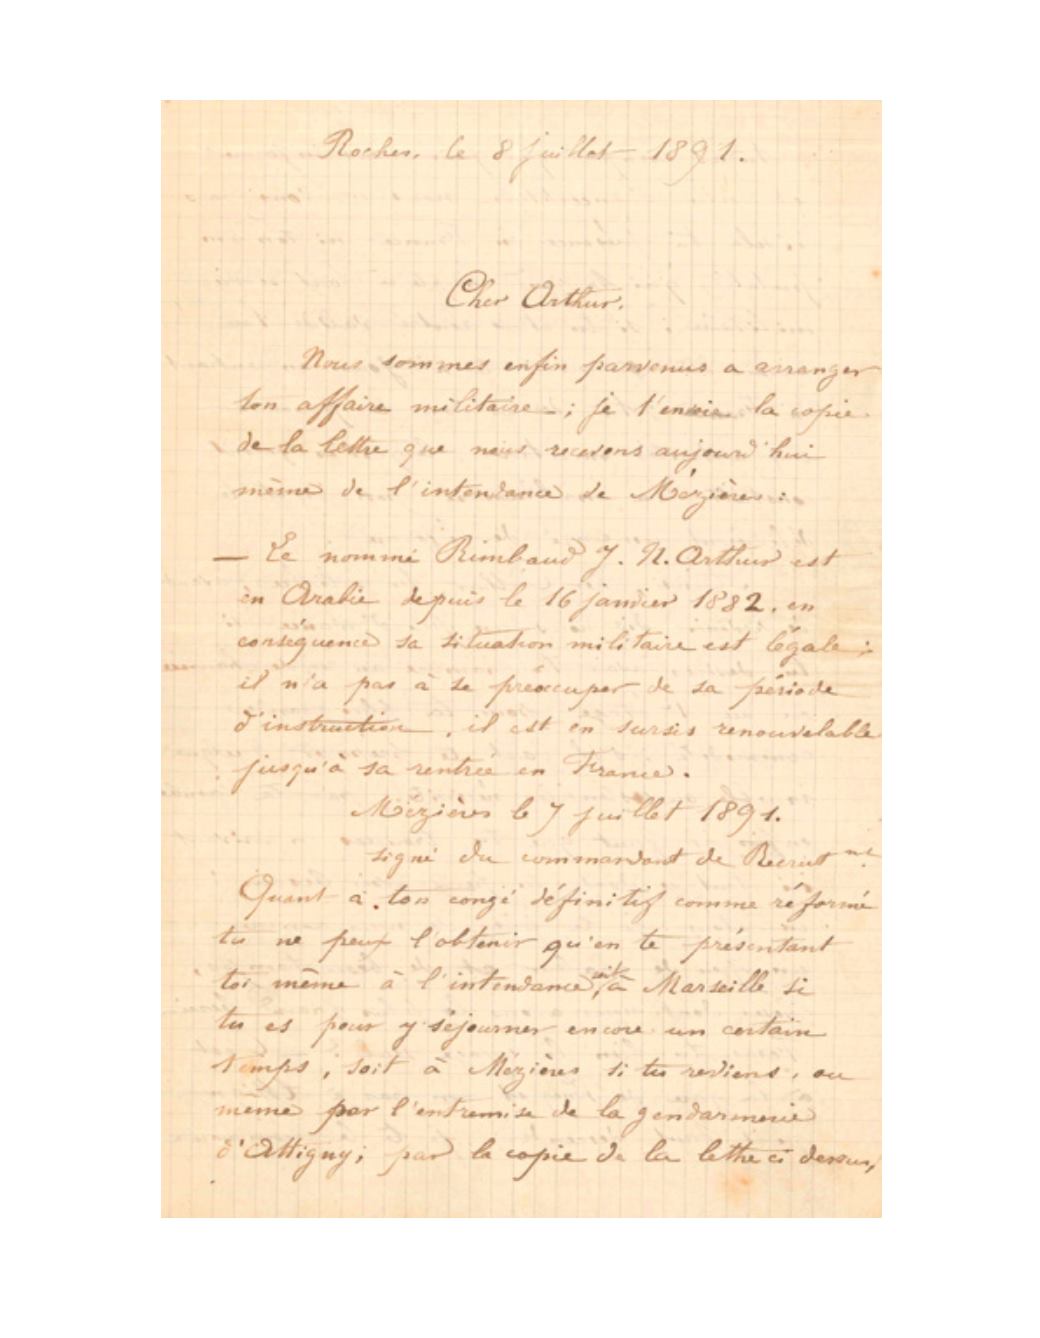 Roches, le 8 juillet 1891.
Cher Arthur,
Nous sommes enfin parvenus a arranger
ton affaire militaire - ; je t'envoie la copie
de la lettre que nous recevons aujourd'hui
même de l'intendance de Mézières :
— Le nommé Rimbaud J. N. Arthur est
en Arabie depuis le 16 janvier 1882, en
conséquence sa situation militaire est légale ;
il n'a pas à se préoccuper de sa période
d'instruction, il est en sursis renouvelable
jusqu'à sa rentrée en France.
Mézières le 7 juillet 1891.
signé du commandant de Recrut nt.
Quant à ton congé définitif comme réformé
tu ne peux l'obtenir qu'en te présentant
toi même à l'intendance, soit à Marseille si
tu es pour y séjourner encore un certain
temps, soit à Mézières si tu reviens, ou
même par l'entremise de la gendarmerie
d'Attigny; par la copie de la lettre ci dessus,